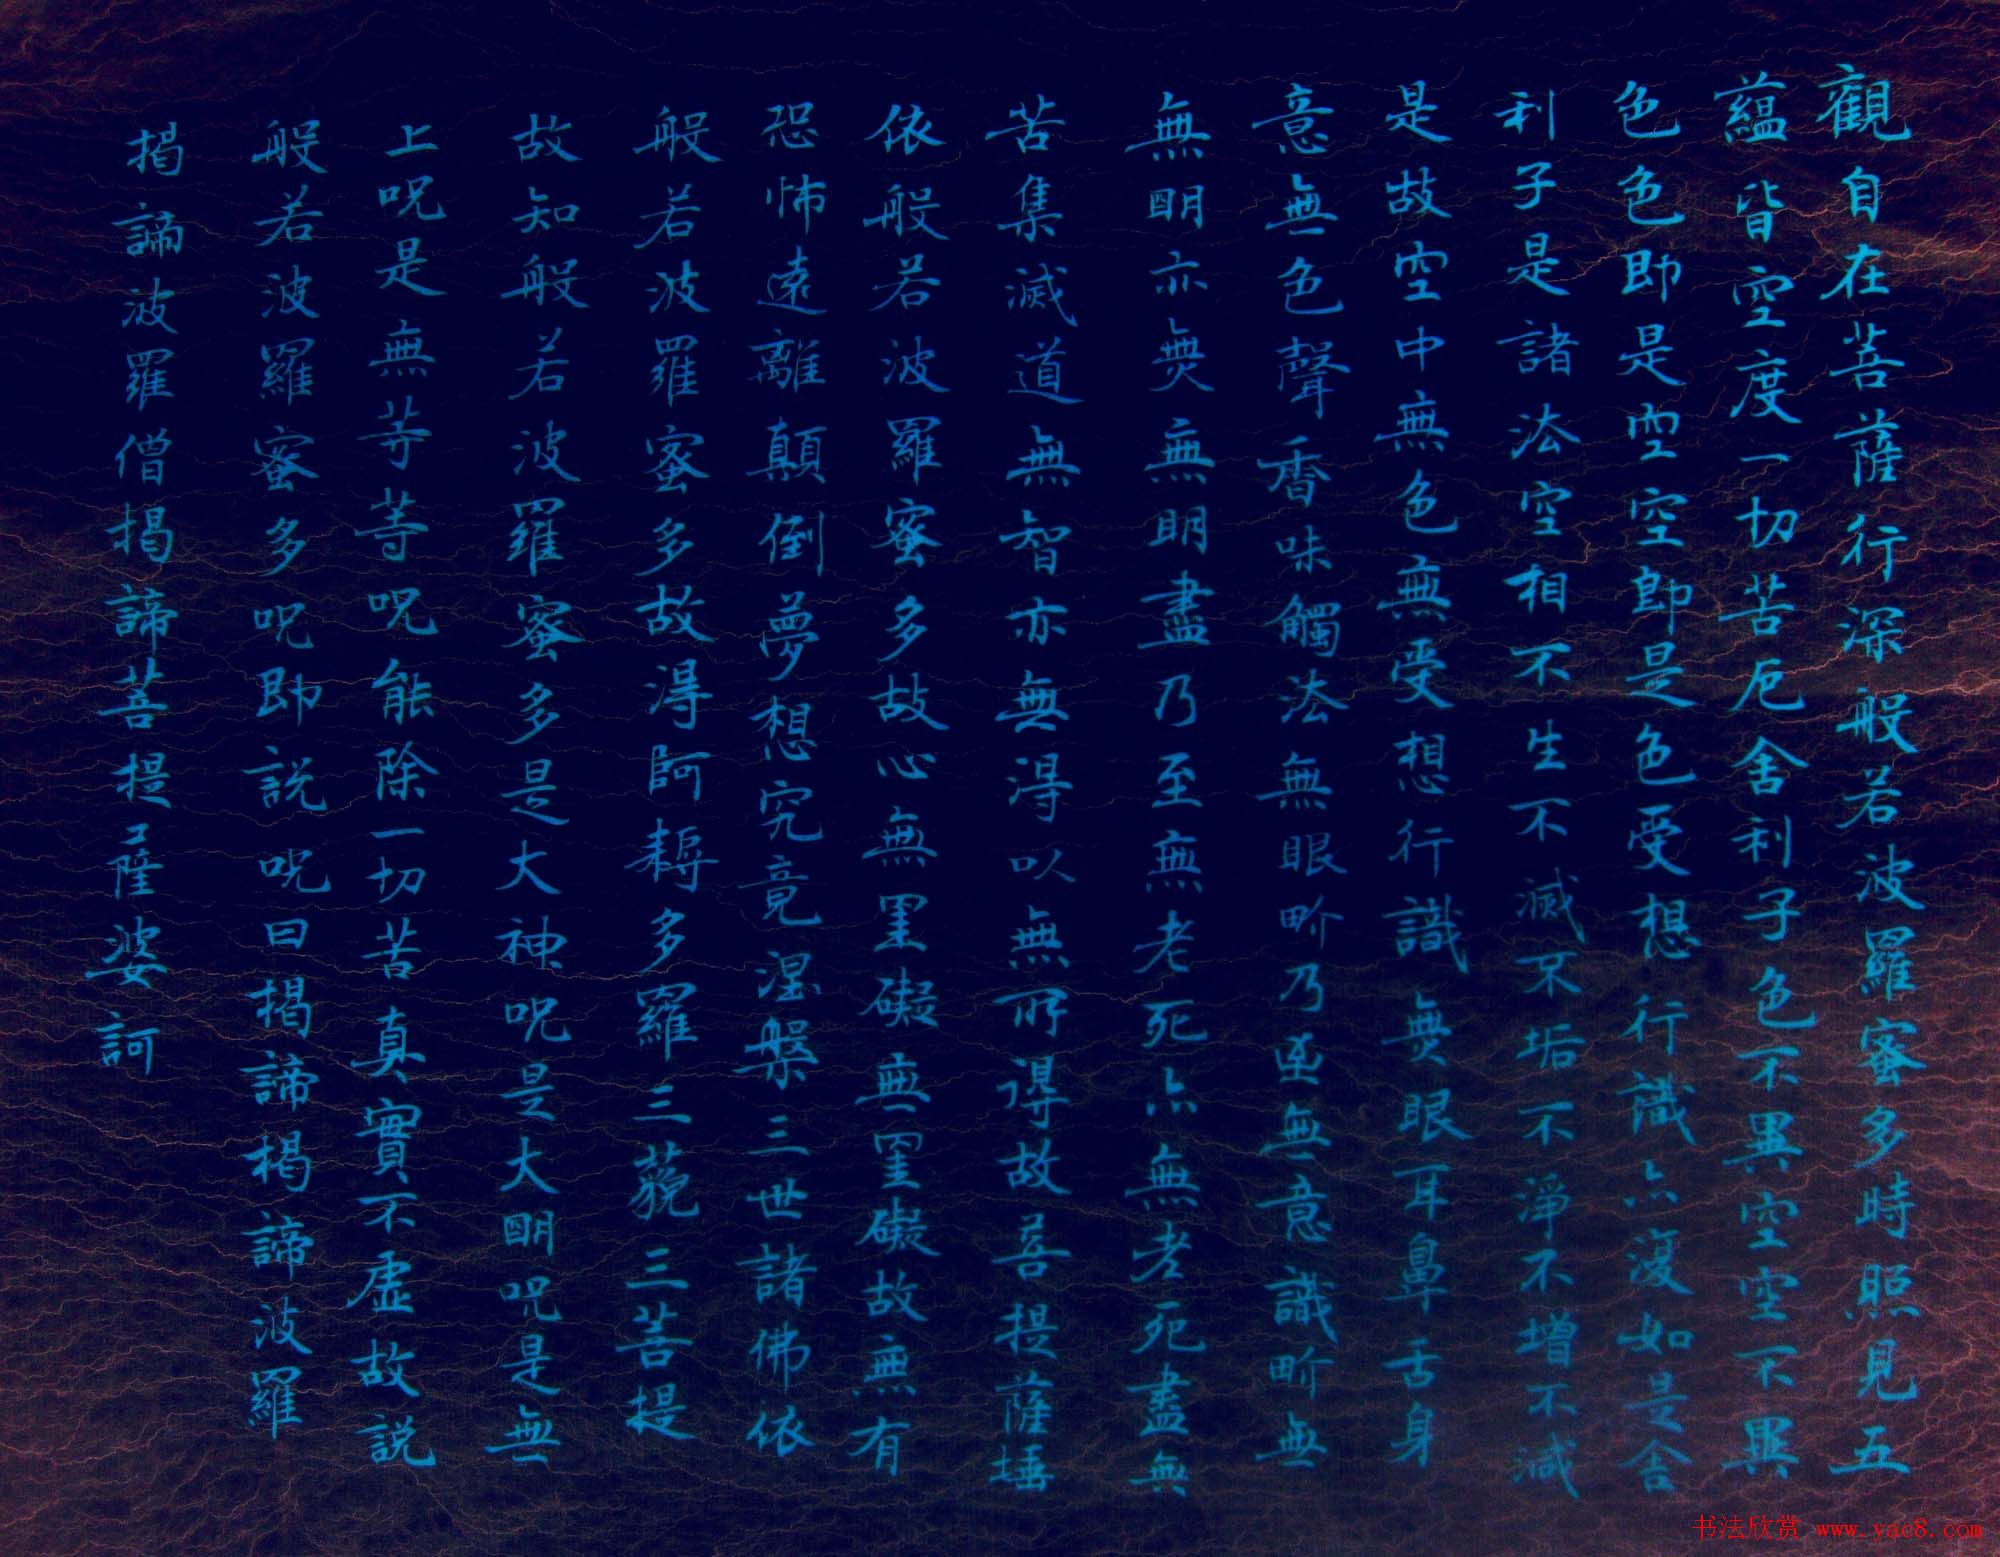 觀自在菩薩行深般若波羅蜜多時照見五
蘊皆空度一切苦厄舍利子色不異空空不異
色色即是空空即是色受想行識亦復如是舍
利子是諸法空相不生不滅不垢不淨不增不減
是故空中無色無受想行識無眼耳鼻舌身
意無色聲香味觸法無眼界乃至無意識界無
無明亦無無明盡乃至無老死亦無老死盡無
苦集滅道無智亦無得以無所得故菩提薩埵
依般若波羅蜜多故心無罣礙無罣礙故無有
恐怖遠離顛倒夢想究竟涅槃三世諸佛依
般若波羅蜜多故得阿耨多羅三藐三菩提
故知般若波羅蜜多是大神咒是大明咒是無
上咒是無等等咒能除一切苦真實不虛故説
般若波羅蜜多咒即説咒曰揭諦揭諦波羅
揭諦波羅僧揭諦菩提薩婆訶
书法欣赏 www.yac8.com